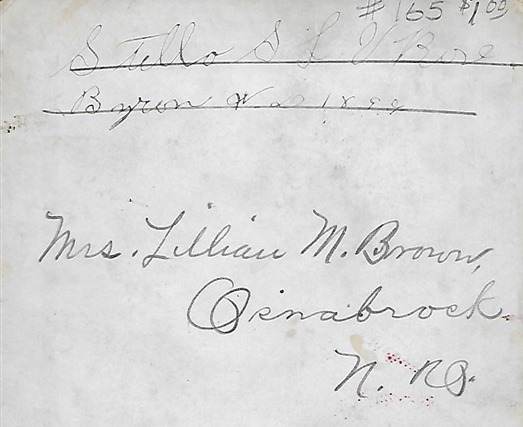 #165 $1.00
Stella S
Byron N D 1899
Mrs. Lillian M. Brown,
Osnabrock
N. D.